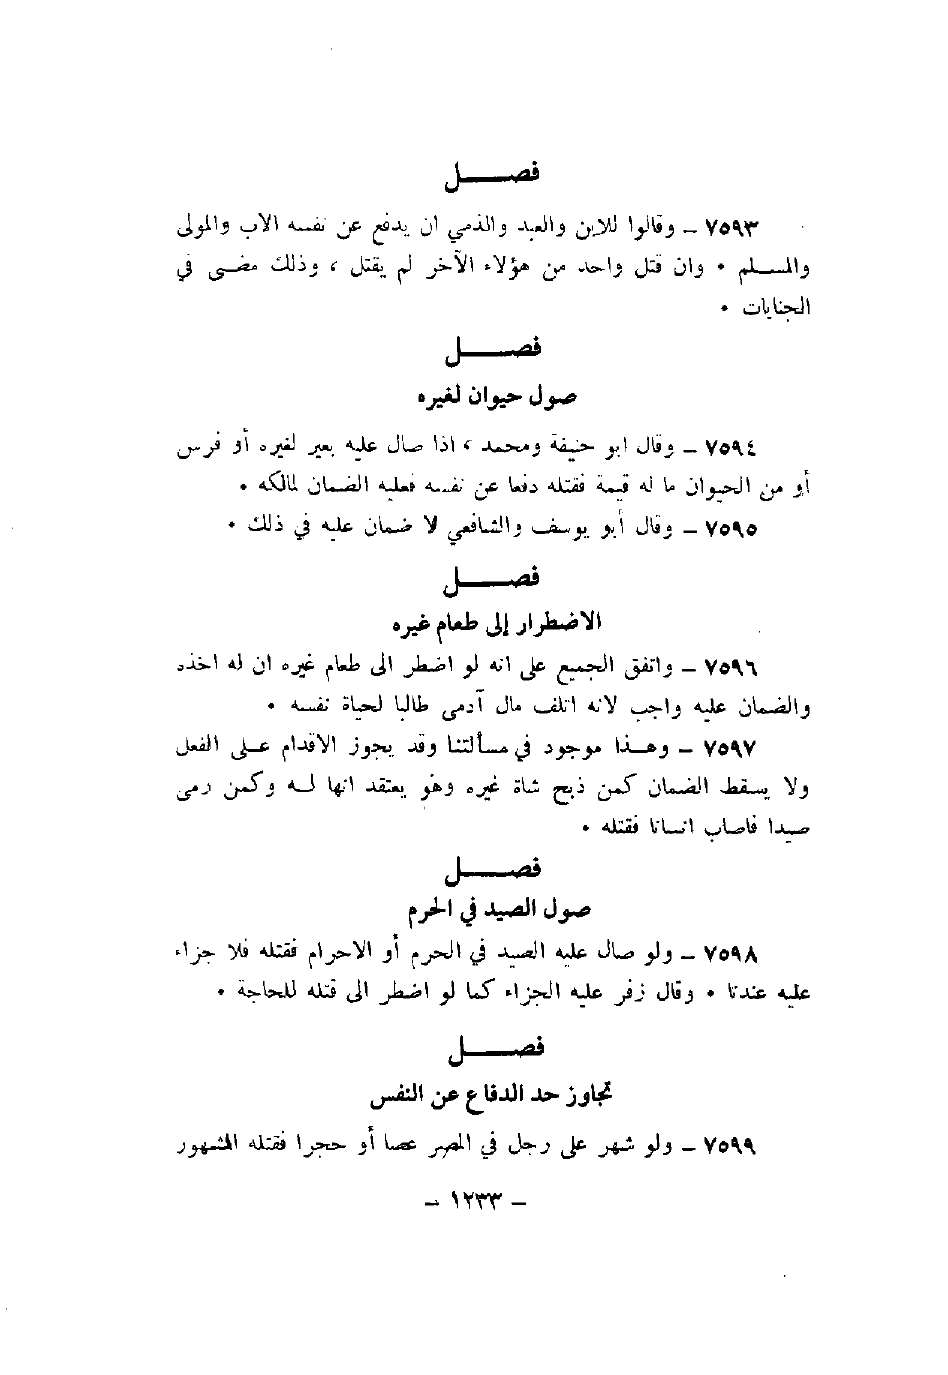 فصــــل
٧٥٩٣ ــ وقالوا للابن والعبد والذمي ان يدفع عن نفسه الاب والمولى
والمسلم • وان قتل واحد من هؤلاء الآخر لم يقتل ، وذلك مضى في
الجنايات •
فصــــل
صول حيوان لغيره
٧٥٩٤ ــ وقال ابو حنيفة ومحمد ، اذا صال عليه بعير لغيره أو فرس
أو من الحيوان ما له قيمة فقتله دفعا عن نفسه فعليه الضمان لمالكه •
٧٥٩٥ ــ وقال أبو يوسف والشافعي لا ضمان عليه في ذلك •
فصــــل
الاضطرار إلى طعام غيره
٧٥٩٦ ــ واتفق الجميع على انه لو اضطر الى طعام غيره ان له اخذه
والضمان عليه واجب لانه اتلف مال آدمى طالبا لحياة نفسه •
٧٥٩٧ ــ وهــذا موجود في مسألتنا وقد يجوز الاقدام علــى الفعل
ولا يسقط الضمان كمن ذبح شاة غيره وهو يعتقد انها لــه وكمن رمى
صيدا فاصاب انسانا فقتله •
فصــــل
صول الصيد في الحرم
٧٥٩٨ ــ ولو صال عليه الصيد في الحرم أو الاحرام فقتله فلا جزاء
عليه عندنا • وقال زفر عليه الجزاء كما لو اضطر الى قتله للحاجة •
فصــــل
تجاوز حد الدفاع عن النفس
٧٥٩٩ ــ ولو شهر على رجل في المصر عصا أو حجرا فقتله المشهور
– ١٢٣٣ –